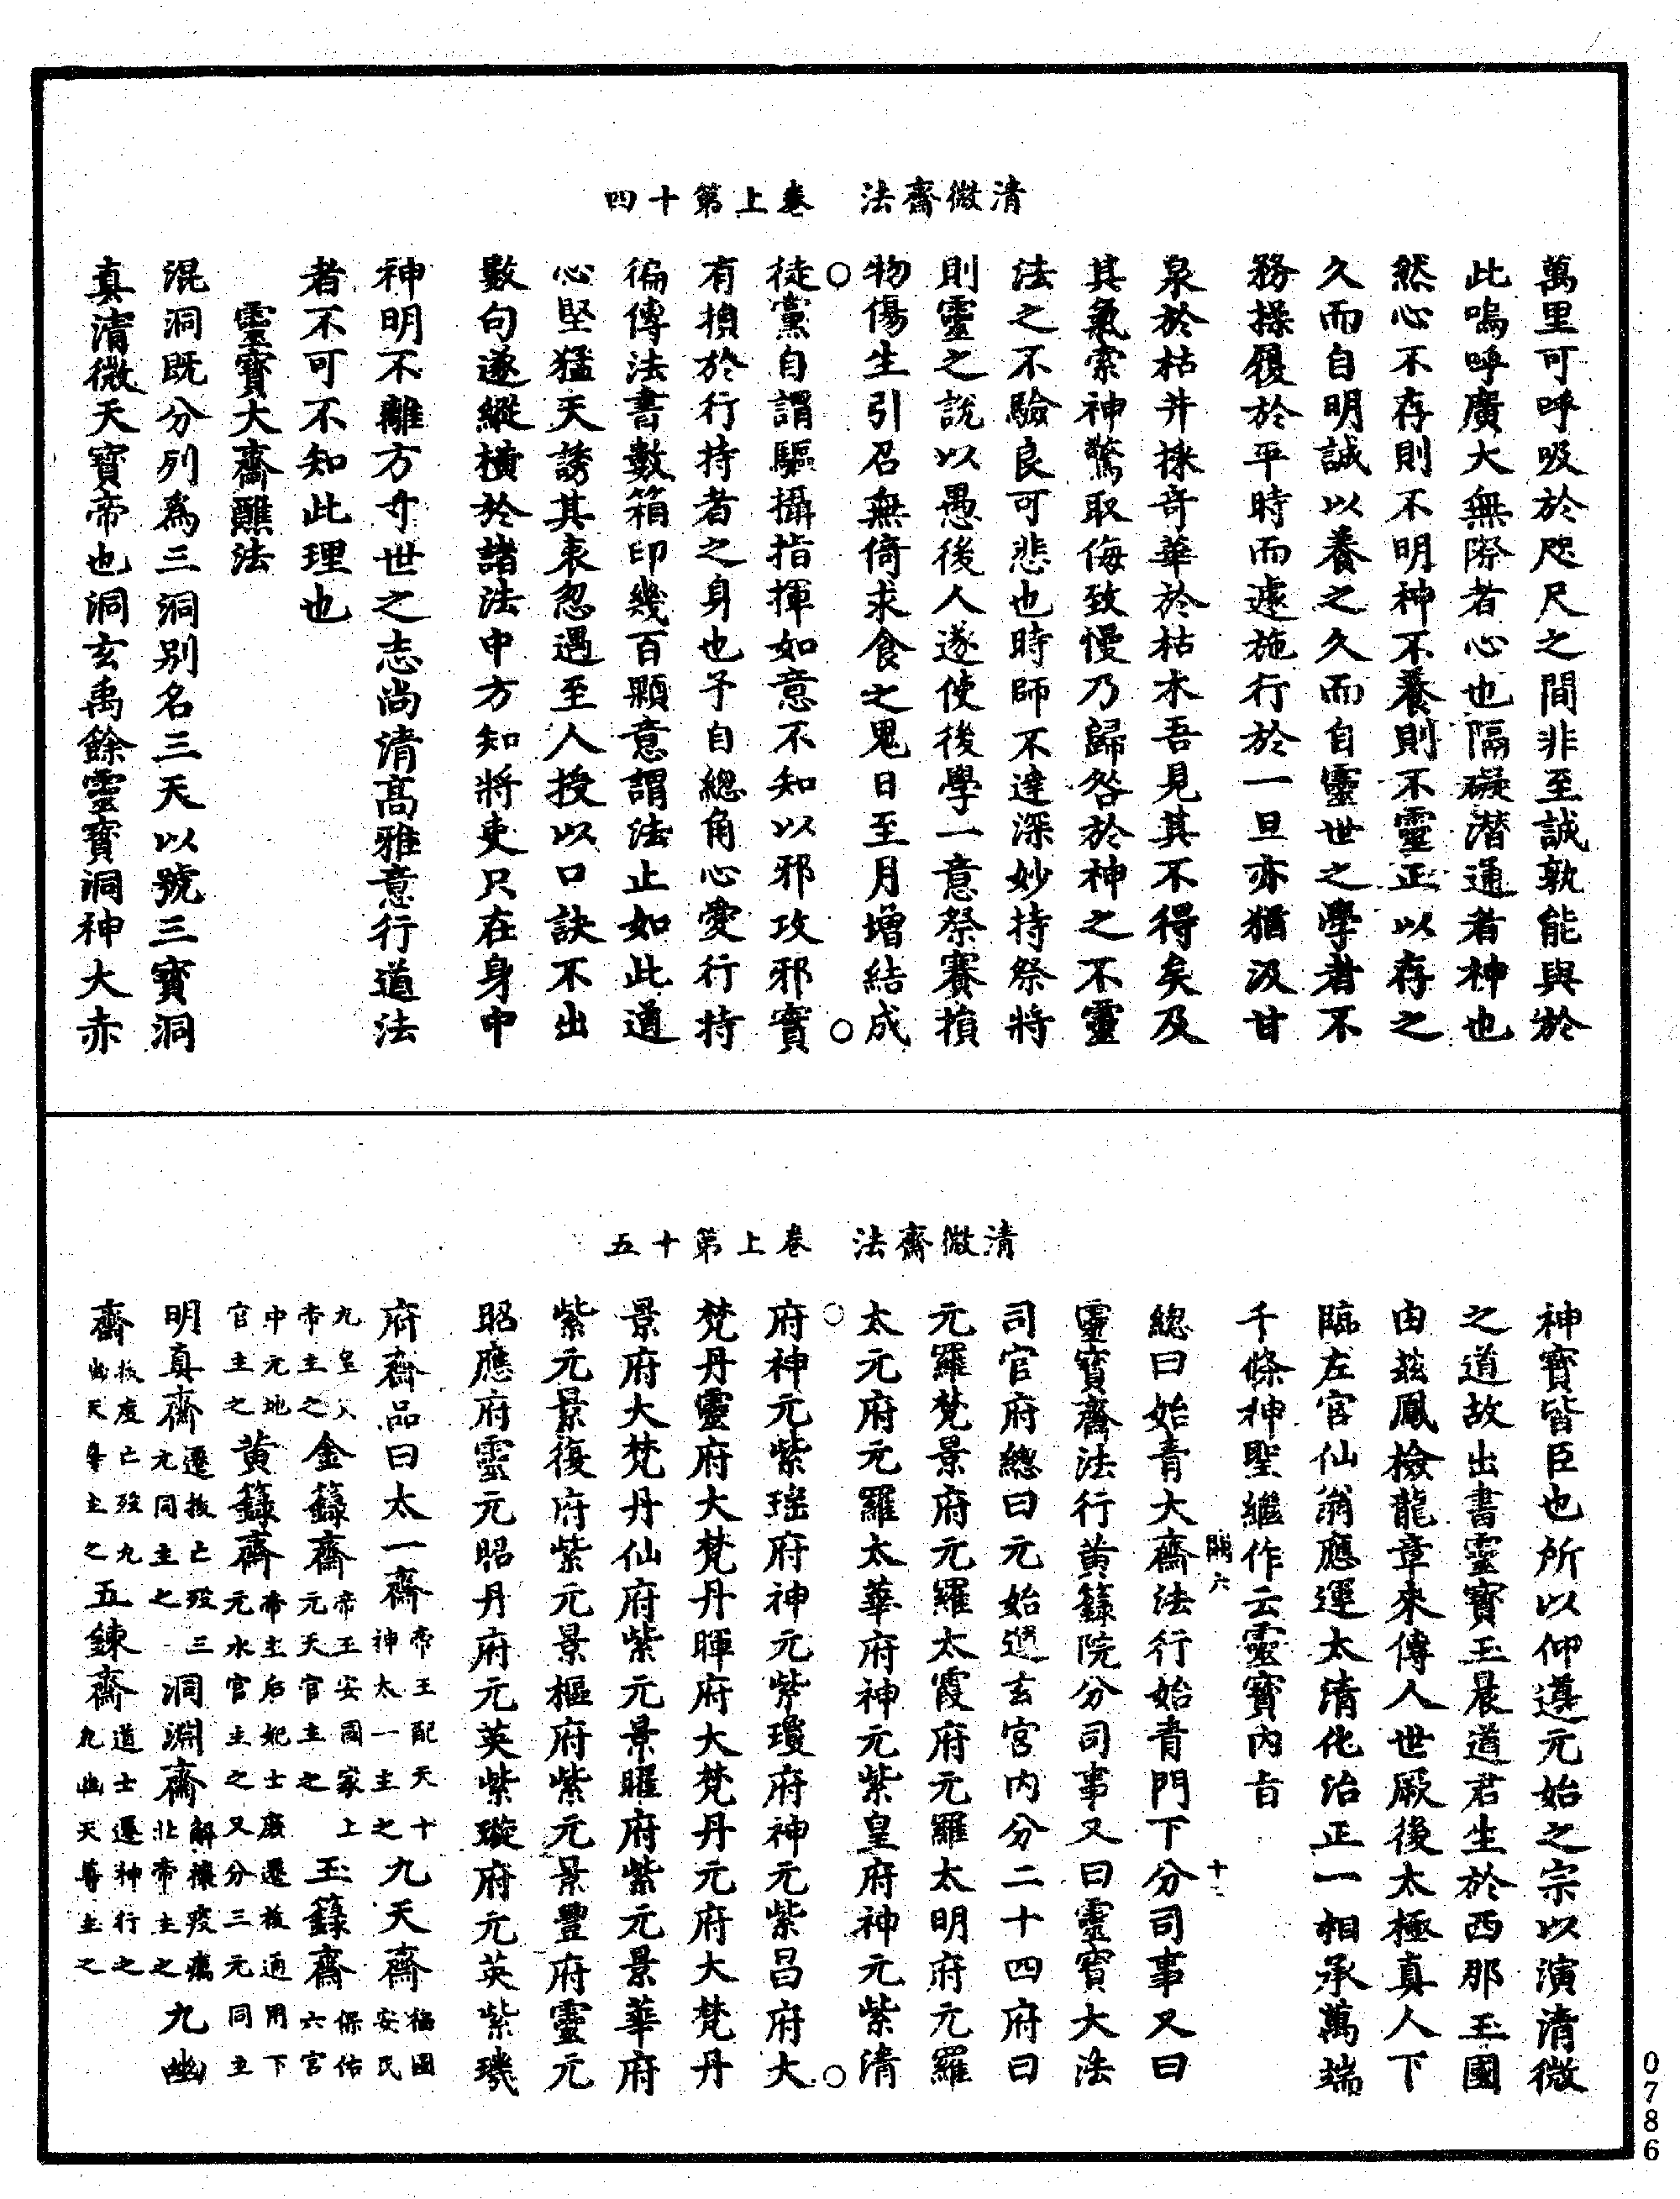 清微齋法　卷上第十四
萬里可呼吸於咫尺之間非至誠孰能與於
此嗚呼廣大無際者心也隔礙潛通者神也
然心不存則不明神不養則不靈正以存之
久而自明誠以養之久而自靈世之學者不
務操履於平時而遽施行於一旦亦猶汲甘
泉於枯井採奇華於枯木吾見其不得矣及
其氣索神驚取侮致慢乃歸咎於神之不靈
法之不驗良可悲也時師不達深妙持祭將
則靈之說以愚後人遂使後學一意祭賽損
物傷生引召無倚求食之鬼日至月增結成
徒黨自謂驅攝指揮如意不知以邪攻邪實
有損於行持者之身也予自總角心愛行持
徧傳法書數箱印幾百顆意謂法止如此道
心堅猛天誘其衷忽遇至人授以口訣不出
數句遂縱橫於諸法中方知將吏只在身中
神明不離方寸世之志尚清高雅意行道法
者不可不知此理也
靈寶大齋醮法
混洞既分列爲三洞别名三天以號三寶洞
真清微天寶帝也洞玄禹餘靈寶洞神大赤
清微齋法　卷上第十五
神寶皆臣也所以仰遵元始之宗以演清微
之道故出書靈寶玉晨道君生於西那玉國
由兹鳳檢龍章來傳人世厥後太極真人下
臨左官仙翁應運太清化治正一相承萬端
千條神聖繼作云靈寶内旨
六　十一
總曰始青大齋法行始青門下分司事又曰
靈寶齋法行黄籙院分司事又曰靈寶大法
司官府總曰元始遥玄宮内分二十四府曰
元羅梵景府元羅太霞府元羅太明府元羅
太元府元羅太華府神元紫皇府神元紫清
府神元紫瑶府神元紫瓊府神元紫昌府大
梵丹靈府大梵丹暉府大梵丹元府大梵丹
景府大梵丹仙府紫元景曜府紫元景華府
紫元景復府紫元景樞府紫元景豐府靈元
昭應府靈元昭丹府元英紫璇府元英紫璣
府齋品曰太一齋帝王配天十神太一主之九天齋福國安民
九皇人帝主之金籙齋帝王安國家上元天官主之玉籙齋保佑六宮
中元地官主之黄籙齋帝主后妃士庶遷拔通用下元水官主之又分三元同主
明真齋遷拔亡歿三元同主之洞淵齋解禳疫癘北帝主之九幽
齋拔度亡歿九幽天尊主之五鍊齋道士遷神行之九幽天尊主之
0786